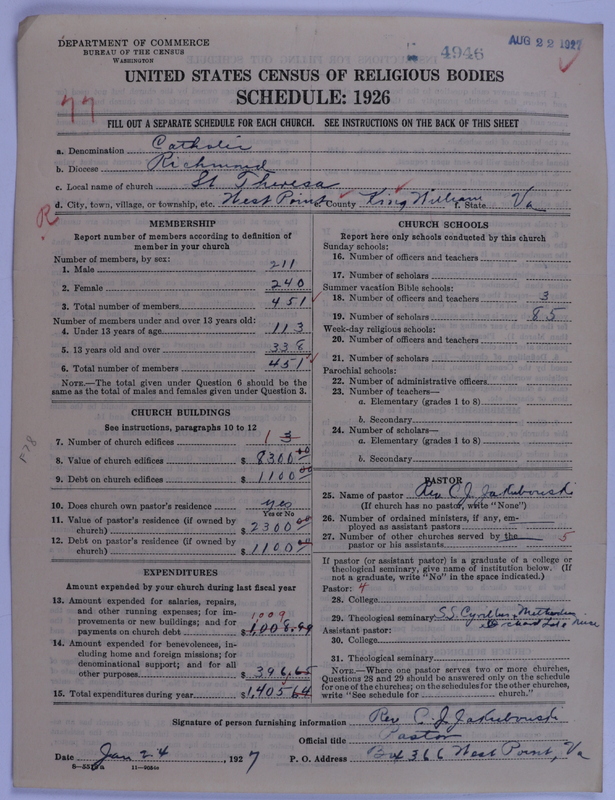 DEPARTMENT OF COMMERCE
BUREAU OF THE CENSUS
WASHINGTON
4946
AUG 22 1927
UNITED STATES CENSUS OF RELIGIOUS BODIES
SCHEDULE: 1926
77
FILL OUT A SEPARATE SCHEDULE FOR EACH CHURCH. SEE INSTRUCTIONS ON THE BACK OF THIS SHEET
a. Denomination Catholic
b. Diocese Richmond
c. Local name of church St Theresa
d. City, town, village, or township, etc. West Point County King William f. State Va
R
MEMBERSHIP
Report number of members according to definition of
member in your church
Number of members, by sex:
1. Male 211
2. Female 240
3. Total number of members 451
Number of members under and over 13 years old:
4. Under 13 years of age 113
5. 13 years old and over 338
6. Total number of members 451
NOTE.—The total given under Question 6 should be
same as the total of males and females given under Question 3.
CHURCH BUILDINGS
See instructions, paragraphs 10 to 12
7. Number of church edifices 1 3
8. Value of church edifices $8300.00
9. Debt on church edifices $1100.00
10. Does church own pastor's residence yes
Yes or No
11. Value of pastor's residence (if owned by
church) $2300.00
12. Debt on pastor's residence (if owned by
church) $1100.00
EXPENDITURES
Amount expended by your church during last fiscal year
13. Amount expended for salaries, repairs,
and other running expenses; for im-
provements or new buildings; and for
payments on church debt $1,008.99
1,009
14. Amount expended for benevolences, in-
cluding home and foreign missions; for
denominational support; and for all
other purposes $396.65
15. Total expenditures during year $1,405.64
CHURCH SCHOOLS
Report here only schools conducted by this church
Sunday schools:
16. Number of officers and teachers
17. Number of scholars
Summer vacation Bible schools:
18. Number of officers and teachers 3
19. Number of scholars 85
Week-day religious schools:
20. Number of officers and teachers
21. Number of scholars
Parochial schools:
22. Number of administrative officers
23. Number of teachers—
a. Elementary (grades 1 to 8)
b. Secondary
24. Number of scholars—
a. Elementary (grades 1 to 8)
b. Secondary
PASTOR
25. Name of pastor Rev. C. J. Jakubouski
(If church has no pastor, write "None")
26. Number of ordained ministers, if any, em-
ployed as assistant pastors
27. Number of other churches served by the 5
pastor or his assistants
If pastor (or assistant pastor) is a graduate of a college or
theological seminary, give name of institution below. (If
not a graduate, write "No" in the space indicated.)
Pastor: 4
28. College
29. Theological seminary S.S. Cyrillus & Methodius
Orchard Lake Mich
Assistant pastor:
30. College
31. Theological seminary
NOTE.—Where one pastor serves two or more churches,
Questions 28 and 29 should be answered only on the schedule
for one of the churches; on the schedules for the other churches,
write "See schedule for church."
Signature of person furnishing information Rev C. J. Jakubouski
Official title Pastor
Date Jan 24, 1927 P. O. Address Box 366 West Point, Va
11—9084a